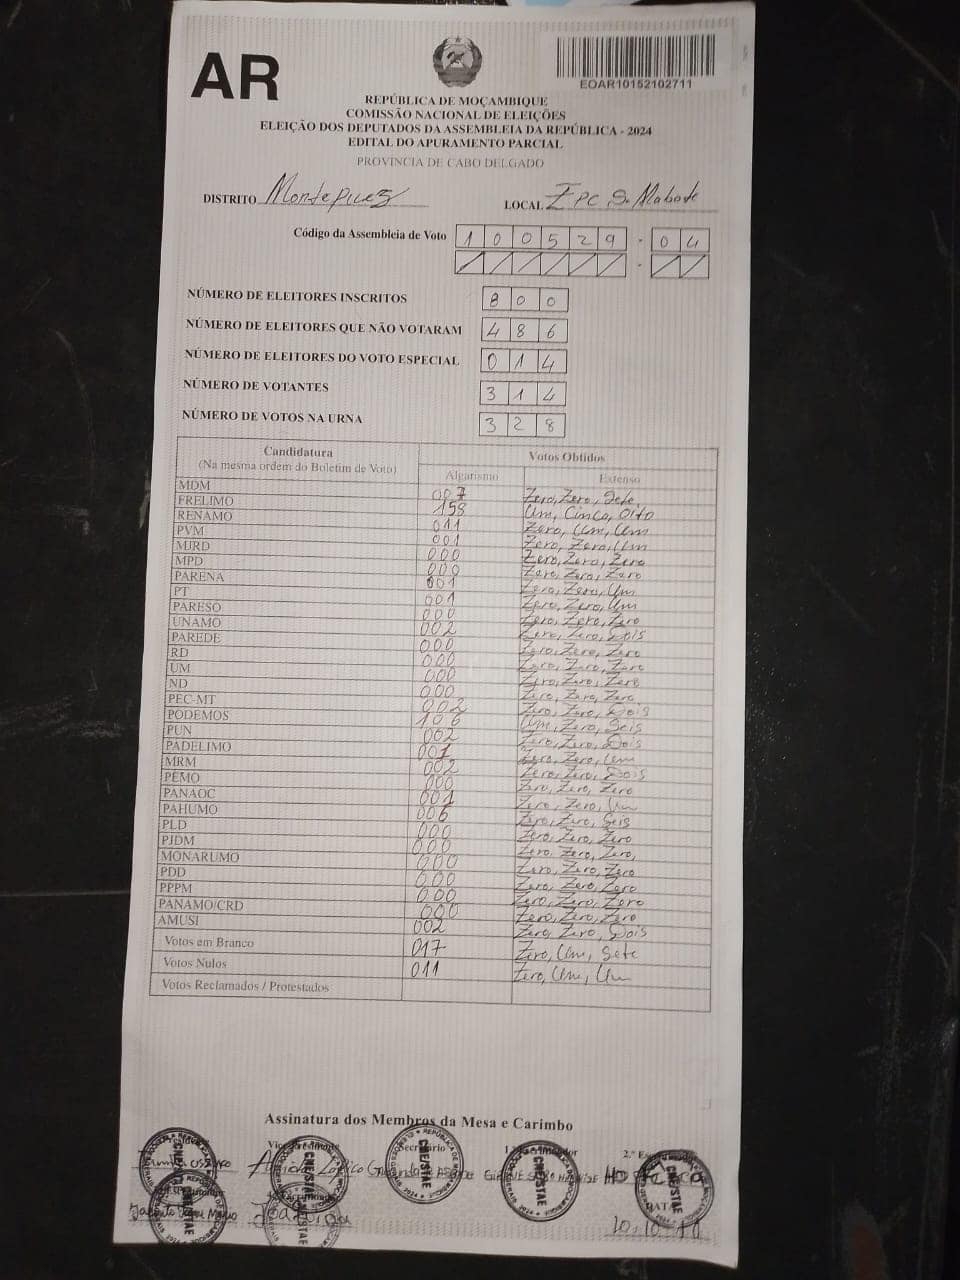 AR
EOAR10152102711
REPÚBLICA DE MOÇAMBIQUE
COMISSÃO NACIONAL DE ELEIÇÕES
ELEIÇÃO DOS DEPUTADOS DA ASSEMBLEIA DA REPÚBLICA - 2024
EDITAL DO APURAMENTO PARCIAL
PROVÍNCIA DE CABO DELGADO
DISTRITO Montepuez LOCAL EPC S. Mabote
Código da Assembleia de Voto 100529 - 04
NÚMERO DE ELEITORES INSCRITOS 800
NÚMERO DE ELEITORES QUE NÃO VOTARAM 486
NÚMERO DE ELEITORES DO VOTO ESPECIAL 014
NÚMERO DE VOTANTES 314
NÚMERO DE VOTOS NA URNA 328
Candidatura Votos Obtidos
(Na mesma ordem do Boletim de Voto) Algarismo Extenso
MDM 007 Zero, Zero, Sete
FRELIMO 158 Um, Cinco, Oito
RENAMO 011 Zero, Um, Um
PVM 001 Zero, Zero, Um
MJRD 000 Zero, Zero, Zero
MPD 000 Zero, Zero, Zero
PARENA 001 Zero, Zero, Um
PT 001 Zero, Zero, Um
PARESO 000 Zero, Zero, Zero
UNAMO 002 Zero, Zero, Dois
PAREDE 000 Zero, Zero, Zero
RD 000 Zero, Zero, Zero
UM 000 Zero, Zero, Zero
ND 000 Zero, Zero, Zero
PEC-MT 002 Zero, Zero, Dois
PODEMOS 106 Um, Zero, Seis
PUN 002 Zero, Zero, Dois
PADELIMO 001 Zero, Zero, Um
MRM 002 Zero, Zero, Dois
PEMO 000 Zero, Zero, Zero
PANAOC 001 Zero, Zero, Um
PAHUMO 006 Zero, Zero, Seis
PLD 000 Zero, Zero, Zero
PJDM 000 Zero, Zero, Zero,
MONARUMO 000 Zero, Zero, Zero
PDD 000 Zero, Zero, Zero
PPPM 000 Zero, Zero, Zero
PANAMO/CRD 000 Zero, Zero, Zero
AMUSI 002 Zero, Zero, Dois
Votos em Branco 017 Zero, Um, Sete
Votos Nulos 011 Zero, Um, Um
Votos Reclamados / Protestados
Assinatura dos Membros da Mesa e Carimbo
CNE/STAE
CNE/STAE
CNE/STAE
CNE/STAE
CNE/STAE